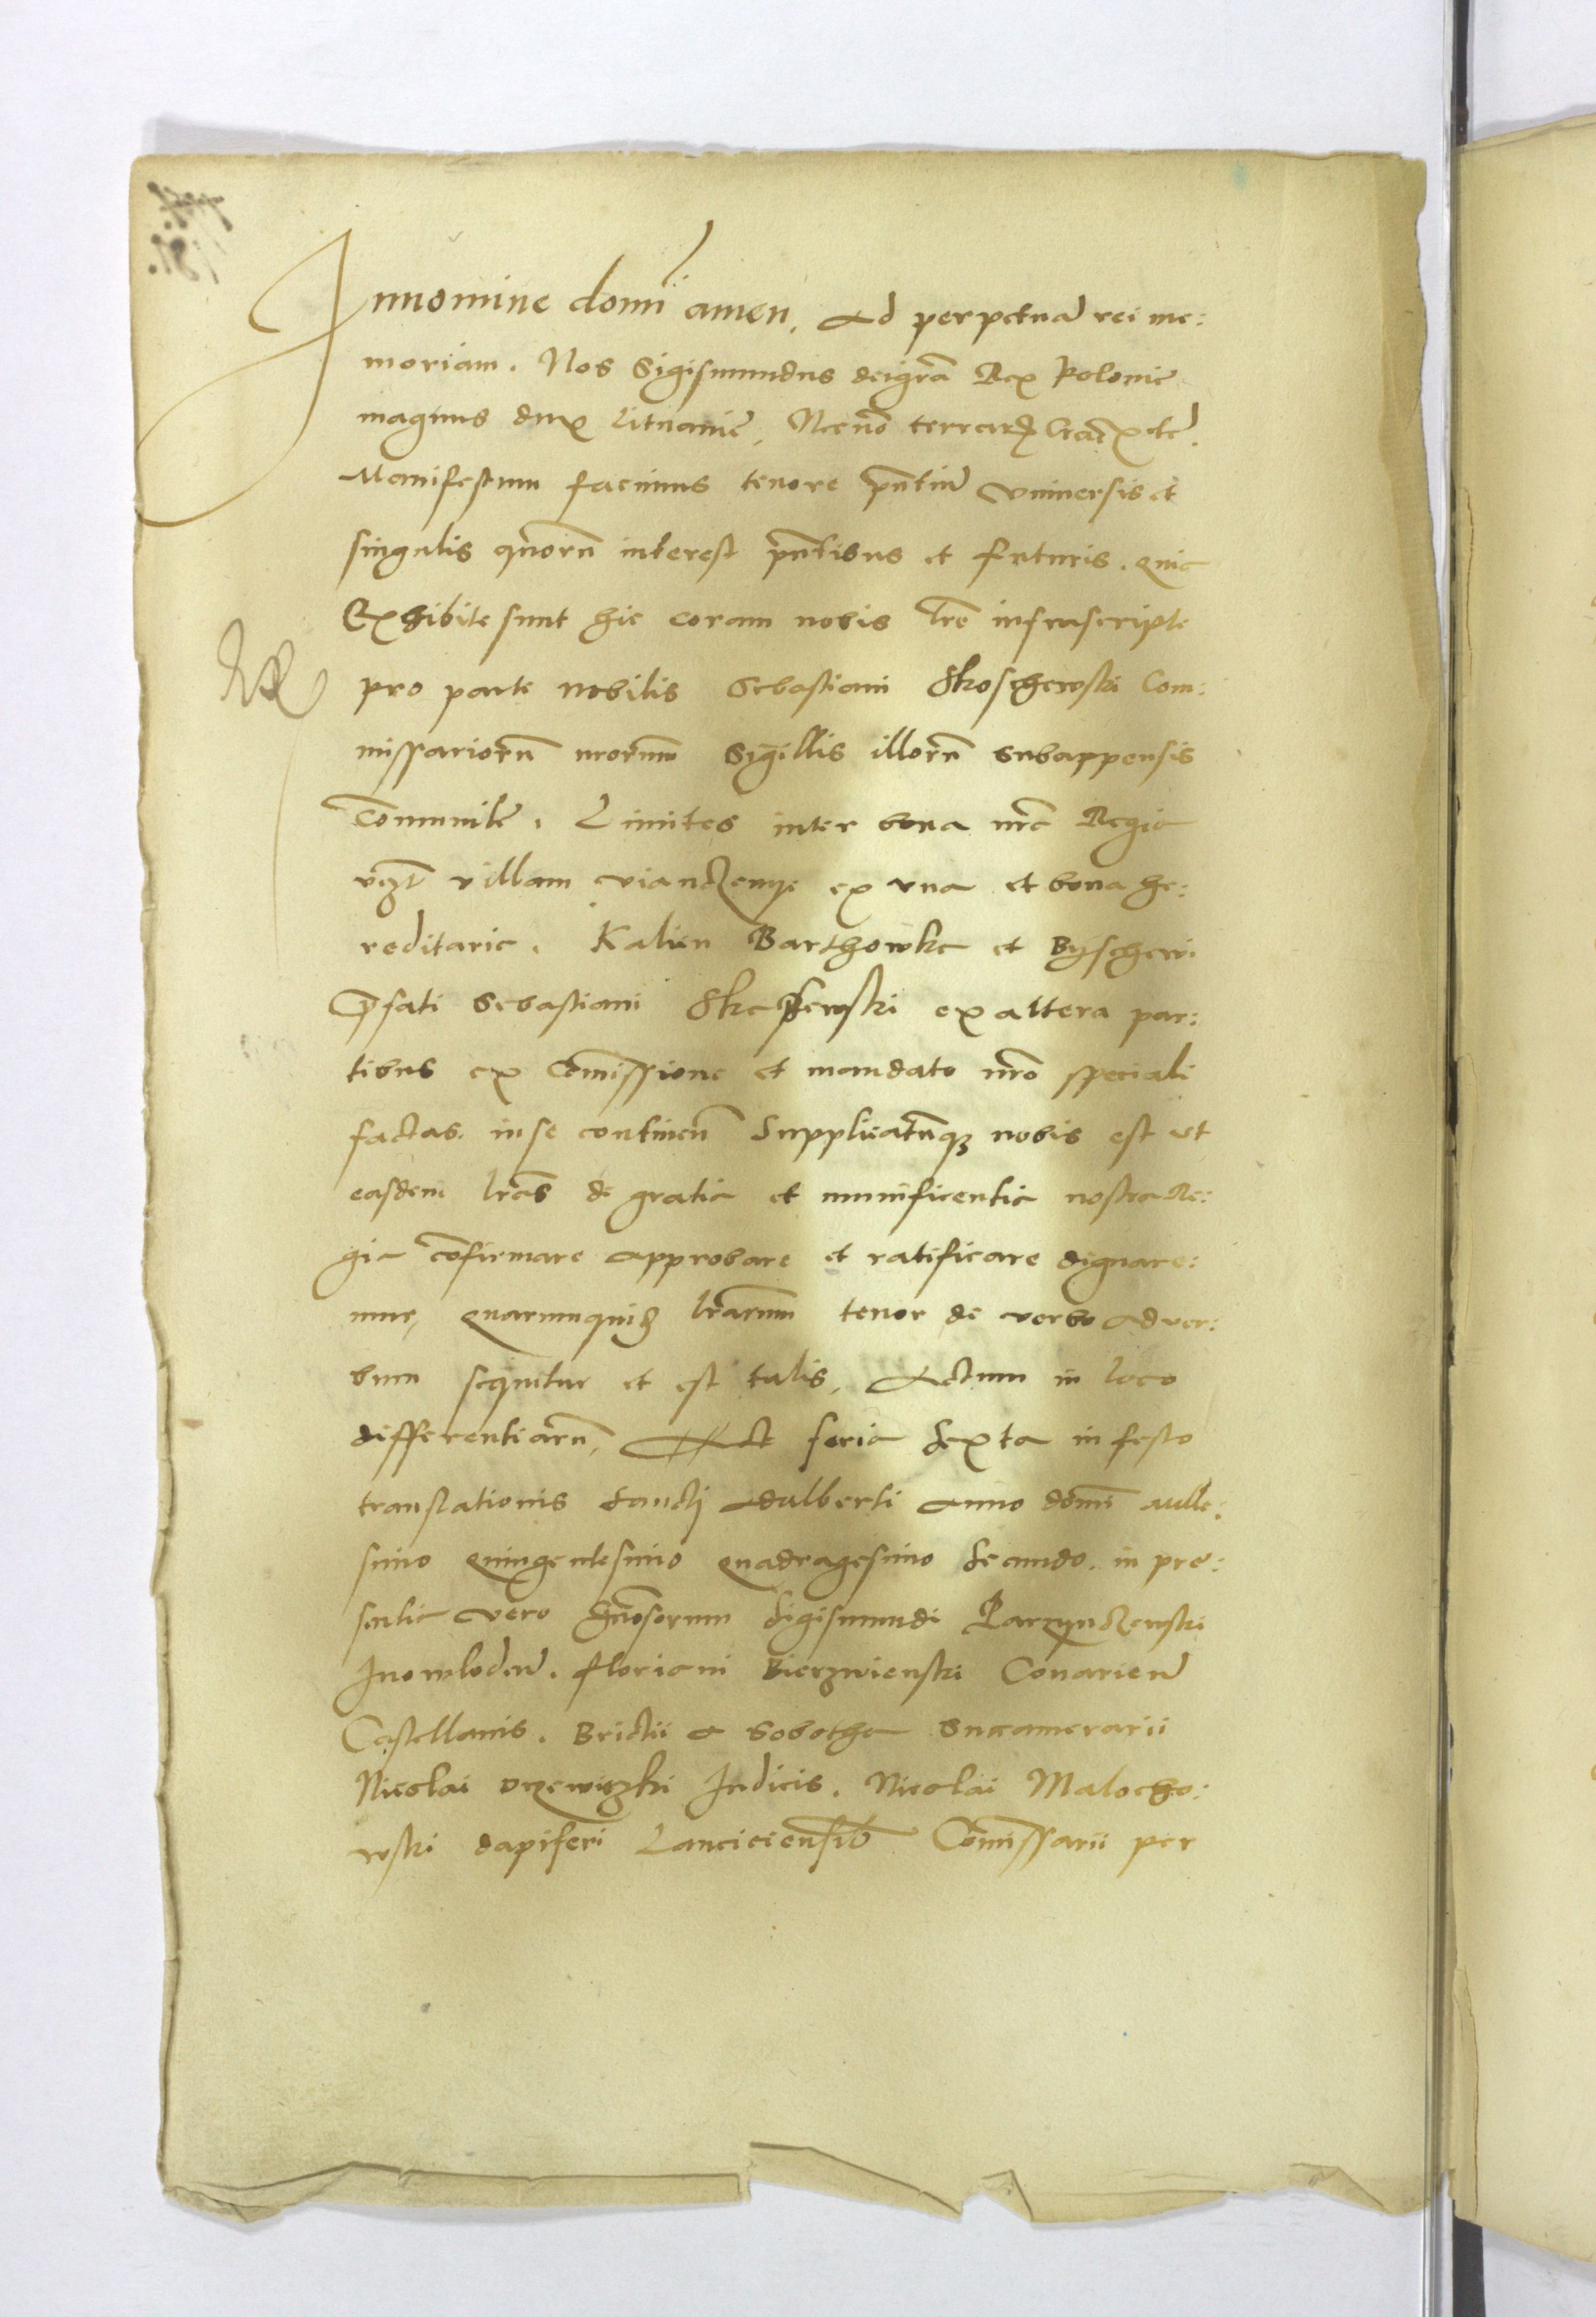 Innomine domi amen, Ad perpetua rei me:
moriam. Nos Sigismundus dei gra Rex Polonie
magnus dux Lituanie, Necno terrar etc.
Manifestum facimus tenore pntiu vniversis et
singulis quoru interest pntibus et futuris. quia
Exhibite sunt hic coram nobis lre infrascripte
pro parte nobilis Sebastiani Skoschewski Com:
missarioru nrorum Sigillis illoru subappensis
Comunite. Limites inter bona nra Regia
vzt villam ex vna et bona he:
reditaria. Kalien Barthowka et Byschewi
Prefati Sebastiani Skoschewski ex altera par:
tibus ex Comissione et mandato nro speciali
factas in se continen Supplicatuqz nobis est vt
easdem lras de gratia et munificentia nostra Re:
gia confirmare approbare et ratificare dignare:
mur, quarumquid lrarum tenor de verbo ad ver:
bum sequitur et est talis, Actum in loco
differentiaru, feria Sexta in festo
translationis Sancti Adalberti Anno domi Mille:
simo quingentesimo quadragesimo Secundo. in pre:
sentia vero Gnosorum Sigismundi Parzynczewski
Inowloden. Floriani Bierzwienski Conarien
Castellanis. Brictii a Sobotha Succamerarii
Nicolai Judicis. Nicolai Malocho:
wski dapiferi Lanciciensib Comissarii per